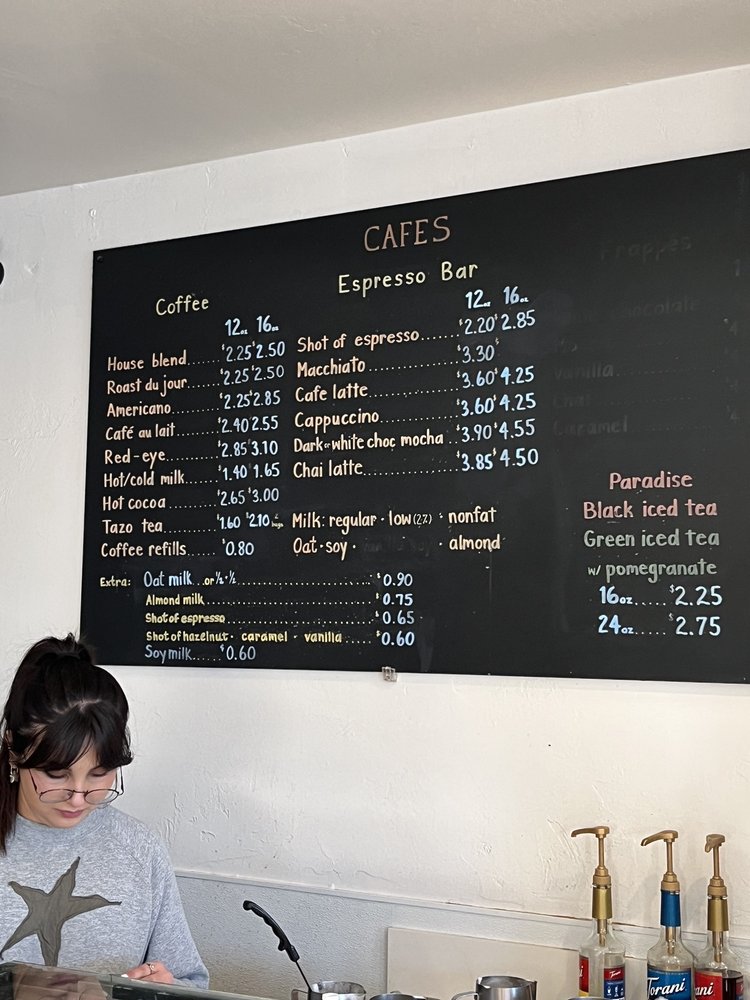 CAFES
Coffee
12oz 16oz
House blend...... $2.25 $2.50
Roast du jour...... $2.25 $2.50
Americano...... $2.25 $2.85
Café au lait...... $2.40 2.55
Red-eye...... $2.85 3.10
Hot/cold milk...... $1.40 $1.65
Hot cocoa...... $2.65 $3.00
Tazo tea...... $1.60 $2.10 2 bags
Coffee refills...... $0.80
Espresso Bar
12oz 16oz
Shot of espresso...... $2.20 $2.85
Macchiato...... $3.30 $
Cafe latte...... $3.60 $4.25
Cappuccino...... $3.60 $4.25
Dark or white choc mocha.. $3.90 $4.55
Chai latte...... $3.85 $4.50
Milk: regular · low (2%) · nonfat
Oat · soy · almond
Extra: Oat milk...or ½+½...... $0.90
Almond milk...... $0.75
Shot of espresso...... $0.65
Shot of hazelnut · caramel · vanilla..... $0.60
Soy milk..... $0.60
Frappes
Vanilla
Chai
Caramel
Paradise
Black iced tea
Green iced tea
w/ pomegranate
16oz..... $2.25
24oz..... $2.75
Torani